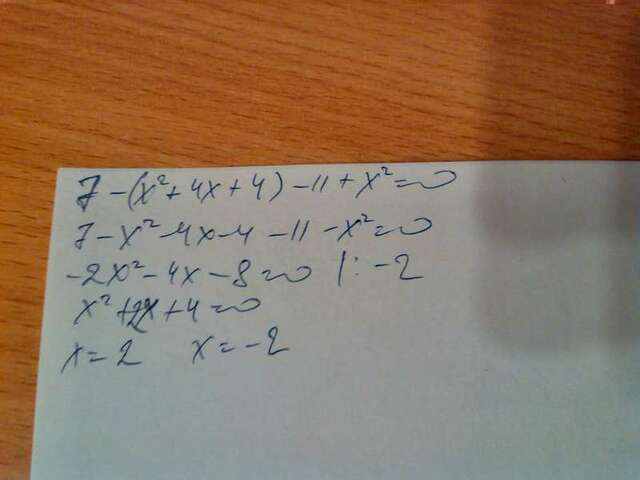 7 - (x² + 4x + 4) - 11 + x² = 0
7 - x² - 4x - 4 - 11 - x² = 0
-2x² - 4x - 8 = 0 |: -2
x² + 2x + 4 = 0
x = 2 x = -2